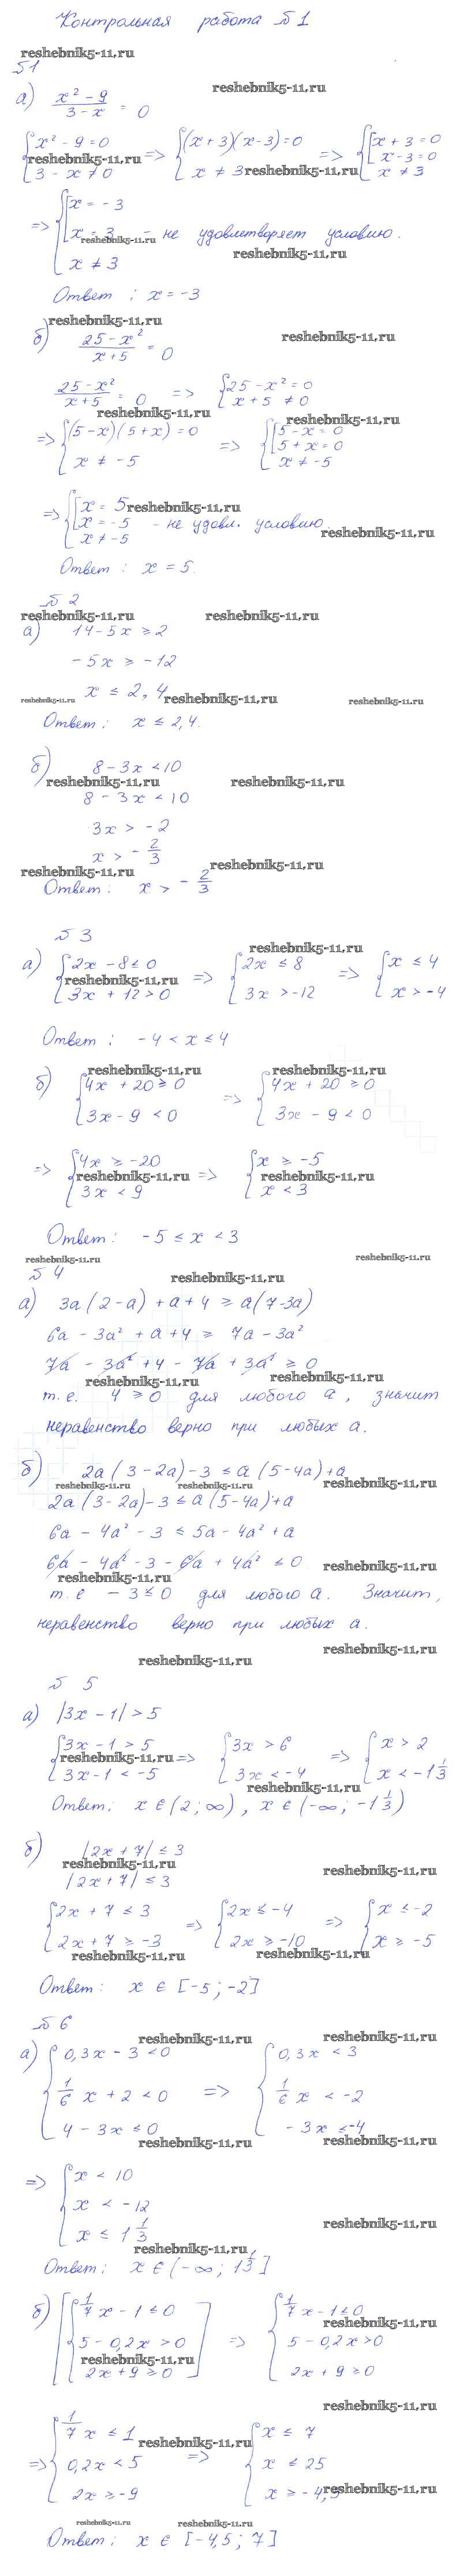 Контрольная работа №1
reshebnik5-11.ru
№1
reshebnik5-11.ru
а) x² - 9 / 3 - x = 0
{x² - 9 = 0 => {(x+3)(x-3) = 0 => {[x + 3 = 0
reshebnik5-11.ru x - 3 = 0
3 - x ≠ 0 x ≠ 3 reshebnik5-11.ru x ≠ 3
=> {[x = -3
x = 3 - не удовлетворяет условию.
reshebnik5-11.ru
x ≠ 3 reshebnik5-11.ru
Ответ: x = -3
reshebnik5-11.ru
б) 25 - x² / x + 5 = 0 reshebnik5-11.ru
25 - x² / x + 5 = 0 => {25 - x² = 0
x + 5 ≠ 0
reshebnik5-11.ru reshebnik5-11.ru
=> {(5-x)(5+x) = 0 => {[5 - x = 0
5 + x = 0
x ≠ -5 x ≠ -5
=> {[x = 5 reshebnik5-11.ru
x = -5 - не удовл. условию.
x ≠ -5 reshebnik5-11.ru
Ответ: x = 5.
№2
reshebnik5-11.ru reshebnik5-11.ru
а) 14 - 5x ≥ 2
-5x ≥ -12
reshebnik5-11.ru x ≤ 2,4 reshebnik5-11.ru reshebnik5-11.ru
Ответ: x ≤ 2,4.
б) 8 - 3x < 10
reshebnik5-11.ru reshebnik5-11.ru
8 - 3x < 10
3x > -2
x > - 2/3
reshebnik5-11.ru reshebnik5-11.ru
Ответ: x > - 2/3
№3
reshebnik5-11.ru
а) {2x - 8 ≤ 0 => {2x ≤ 8 => {x ≤ 4
reshebnik5-11.ru
3x + 12 > 0 3x > -12 x > -4
Ответ: -4 < x ≤ 4
reshebnik5-11.ru reshebnik5-11.ru
б) {4x + 20 ≥ 0 => {4x + 20 ≥ 0
3x - 9 < 0 3x - 9 < 0
=> {4x ≥ -20 => {x ≥ -5
reshebnik5-11.ru reshebnik5-11.ru
3x < 9 x < 3
Ответ: -5 ≤ x < 3
reshebnik5-11.ru reshebnik5-11.ru
№4 reshebnik5-11.ru
а) 3a(2-a) + a + 4 ≥ a(7-3a)
6a - 3a² + a + 4 ≥ 7a - 3a²
7a - 3a² + 4 - 7a + 3a² ≥ 0
reshebnik5-11.ru reshebnik5-11.ru
т.е. 4 ≥ 0 для любого a, значит
неравенство верно при любых a.
б) 2a(3-2a) - 3 ≤ a(5-4a) + a
reshebnik5-11.ru reshebnik5-11.ru reshebnik5-11.ru
2a(3-2a) - 3 ≤ a(5-4a) + a
6a - 4a² - 3 ≤ 5a - 4a² + a
6a - 4a² - 3 - 6a + 4a² ≤ 0 reshebnik5-11.ru
reshebnik5-11.ru
т.е - 3 ≤ 0 для любого a. Значит,
неравенство верно при любых a.
reshebnik5-11.ru reshebnik5-11.ru
№ 5
а) |3x - 1| > 5
{3x - 1 > 5 => {3x > 6 => {x > 2
reshebnik5-11.ru
3x - 1 < -5 3x < -4 x < -1 1/3
reshebnik5-11.ru
Ответ: x ∈ (2; ∞), x ∈ (-∞; -1 1/3)
б) |2x + 7| ≤ 3
reshebnik5-11.ru reshebnik5-11.ru
|2x + 7| ≤ 3
{2x + 7 ≤ 3 => {2x ≤ -4 => {x ≤ -2
2x + 7 ≥ -3 2x ≥ -10 x ≥ -5
reshebnik5-11.ru reshebnik5-11.ru
Ответ: x ∈ [-5; -2]
№6
reshebnik5-11.ru reshebnik5-11.ru
а) {0,3x - 3 < 0 {0,3x < 3
1/6 x + 2 < 0 => 1/6 x < -2
4 - 3x ≤ 0 -3x ≤ -4
reshebnik5-11.ru reshebnik5-11.ru
=> {x < 10
x < -12
x ≤ 1 1/3 reshebnik5-11.ru
reshebnik5-11.ru
Ответ: x ∈ (-∞; 1 1/3]
б) [{1/7 x - 1 ≤ 0 {1/7 x - 1 ≤ 0
reshebnik5-11.ru
5 - 0,2x > 0 => 5 - 0,2x > 0
reshebnik5-11.ru
2x + 9 ≥ 0] 2x + 9 ≥ 0
reshebnik5-11.ru
=> {1/7 x ≤ 1 {x ≤ 7
reshebnik5-11.ru
0,2x < 5 => x ≤ 25
2x ≥ -9 x ≥ -4,5 reshebnik5-11.ru
reshebnik5-11.ru reshebnik5-11.ru
Ответ: x ∈ [-4,5; 7]